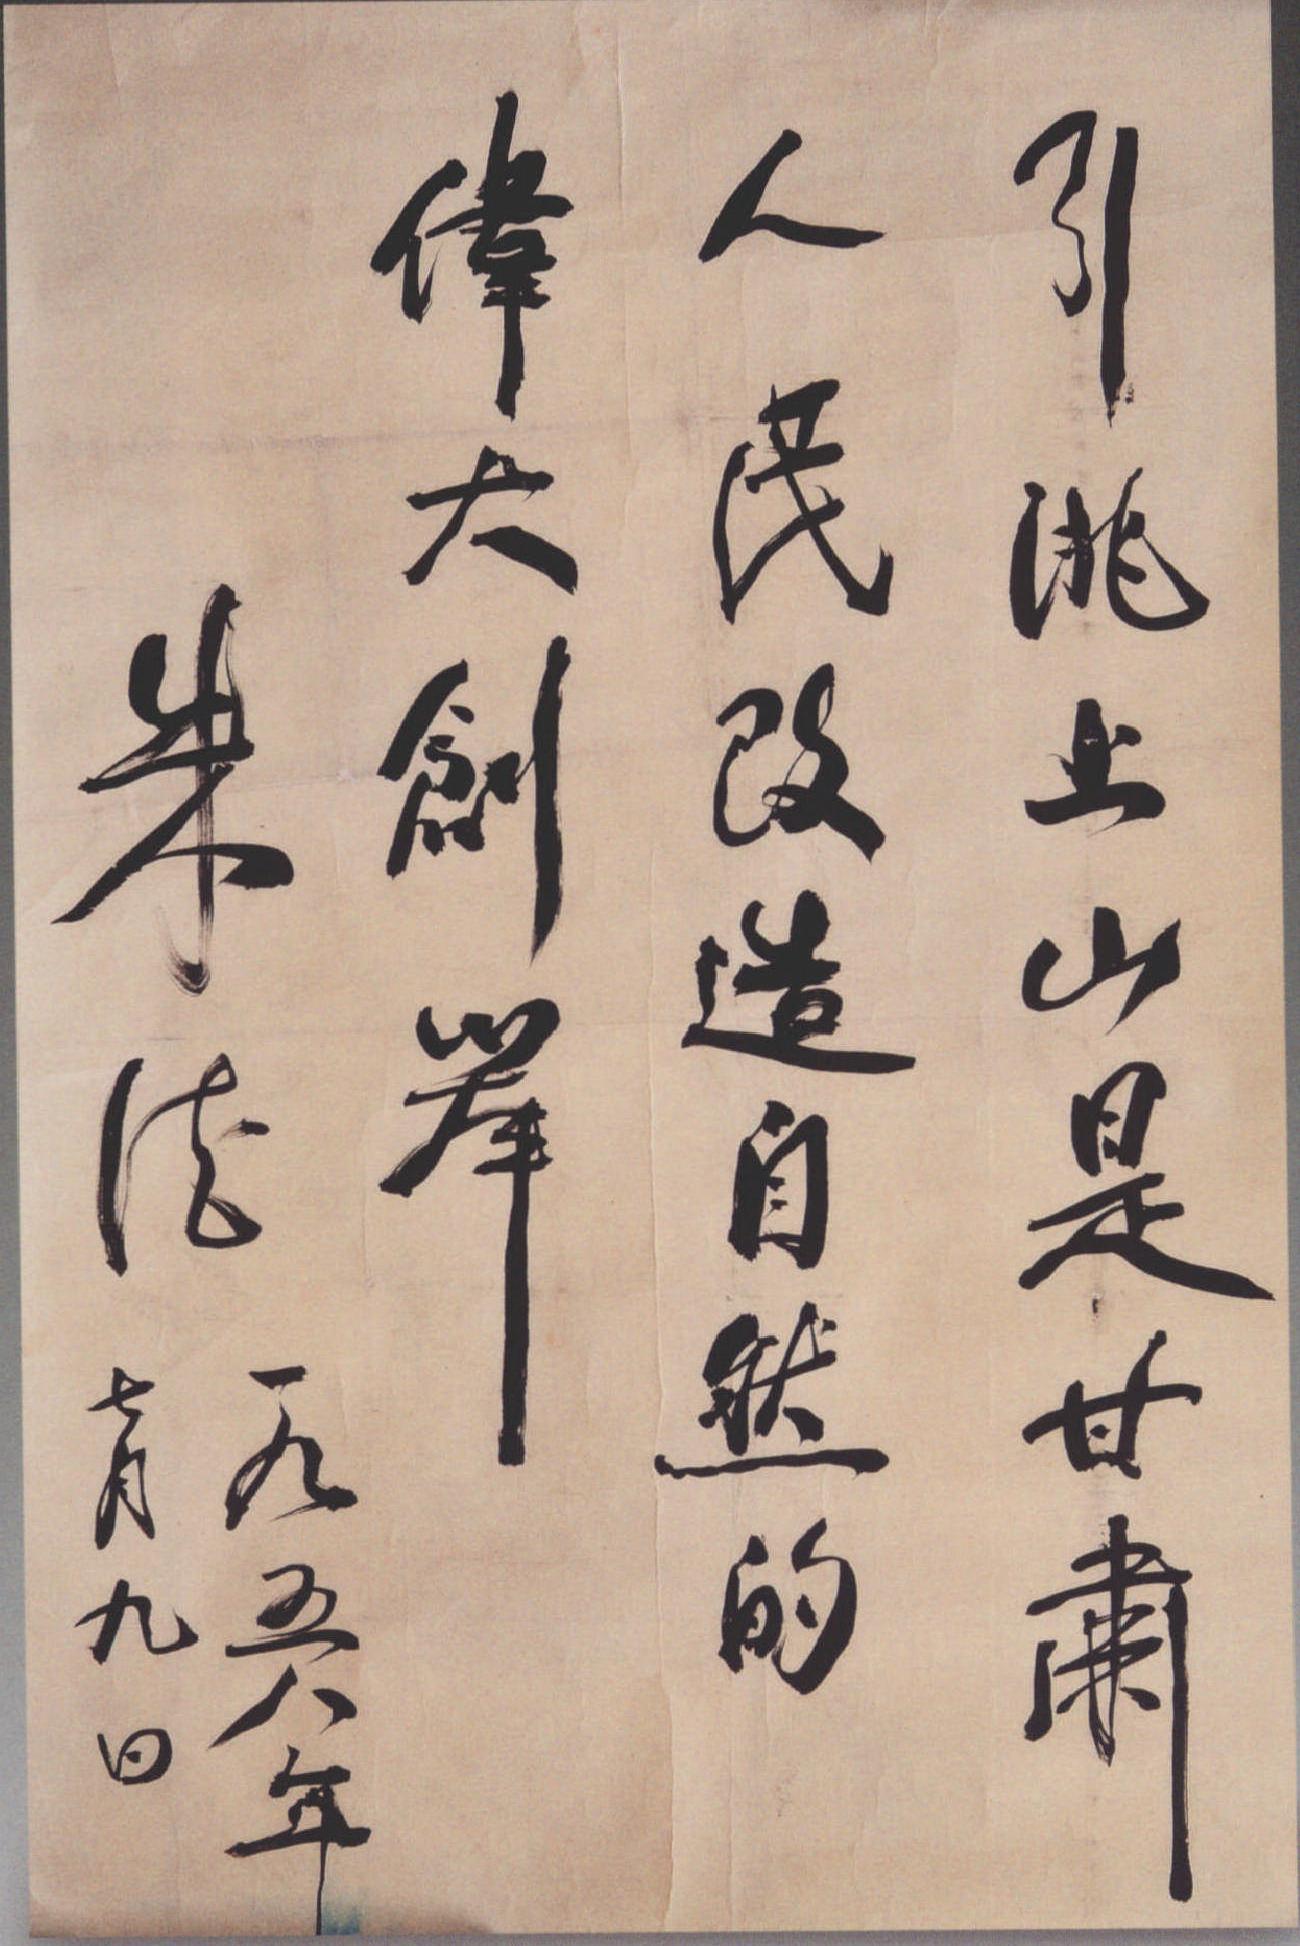 引洮上山是甘肅
人民改造自然的
偉大創舉
朱德
一九五八年
七月九日